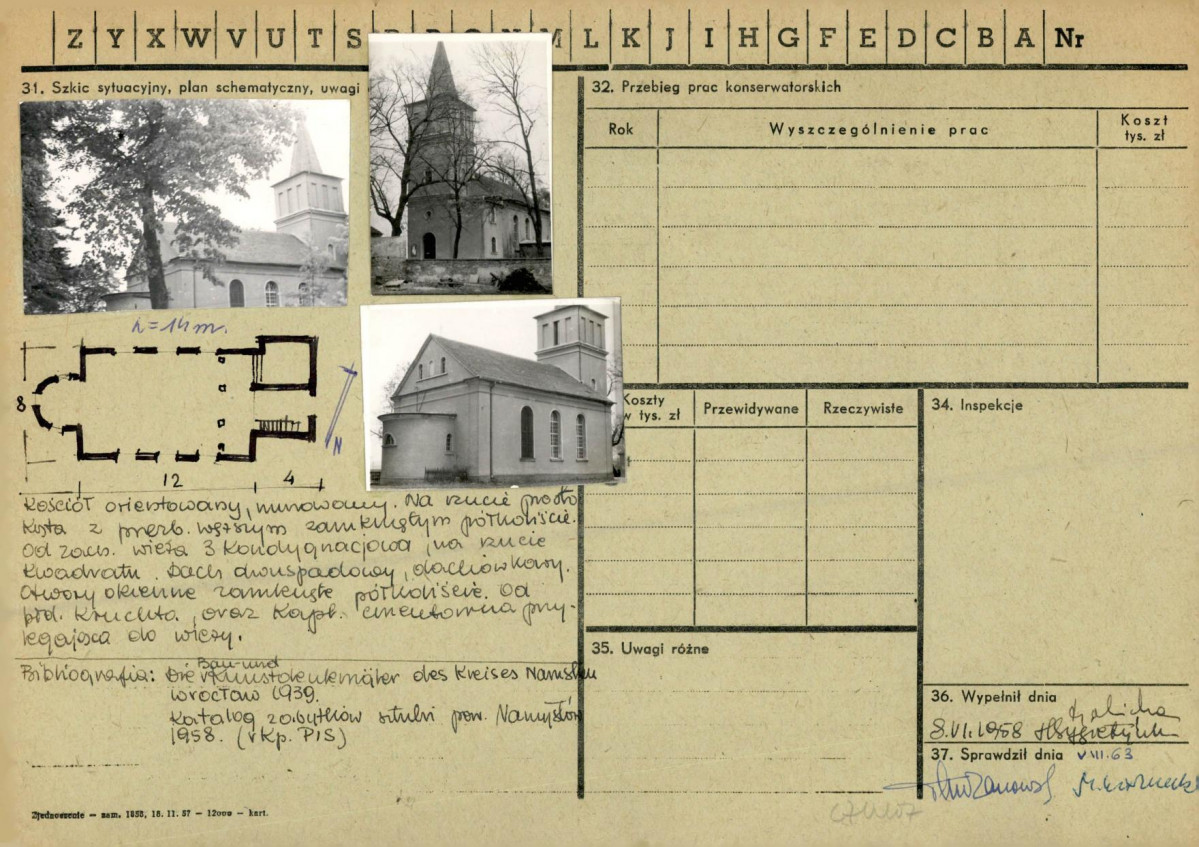 Z Y X W V U T S R P O N M L K J I H G F E D C B A Nr
31. Szkic sytuacyjny, plan schematyczny, uwagi
h = 14 m.
8
N
12
4
Kościół orientowany, murowany. Na rzucie prosto
kąta z prezb. węższym zamkniętym półkoliście.
Od zach. wieża 3 kondygnacjowa, na rzucie
kwadratu. Dach dwuspadowy, dachówkowy.
Otwory okienne zamknięte półkoliście. Od
płd. kruchta, oraz kapl. cmentarna przy-
legająca do wieży.
Bibliografia: Die Bau- und Kunstdenkmäler des Kreises Namslau
Wrocław 1939.
Katalog zabytków sztuki pow. Namysłów
1958. (rkp. PIS)
Zjednoczenie — zam. 1858, 18. 11. 57 — 12000 — kart.
32. Przebieg prac konserwatorskich
Rok
Wyszczególnienie prac
Koszt
tys. zł
Koszty
w tys. zł
Przewidywane
Rzeczywiste
34. Inspekcje
35. Uwagi różne
36. Wypełnił dnia
8.VI.1958
37. Sprawdził dnia VIII.63